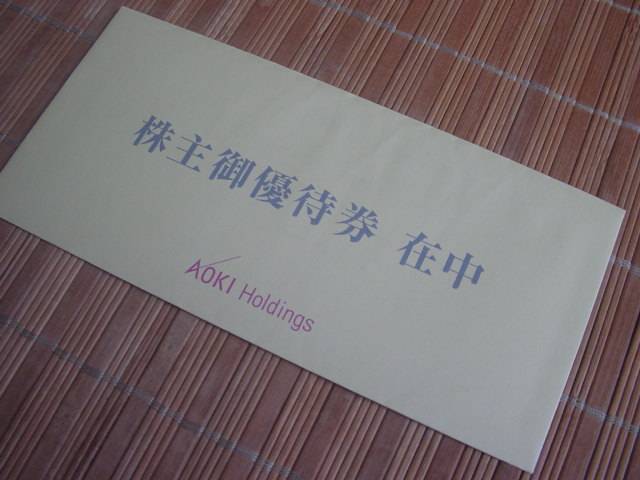 株主御優待券 在中
AOKI Holdings